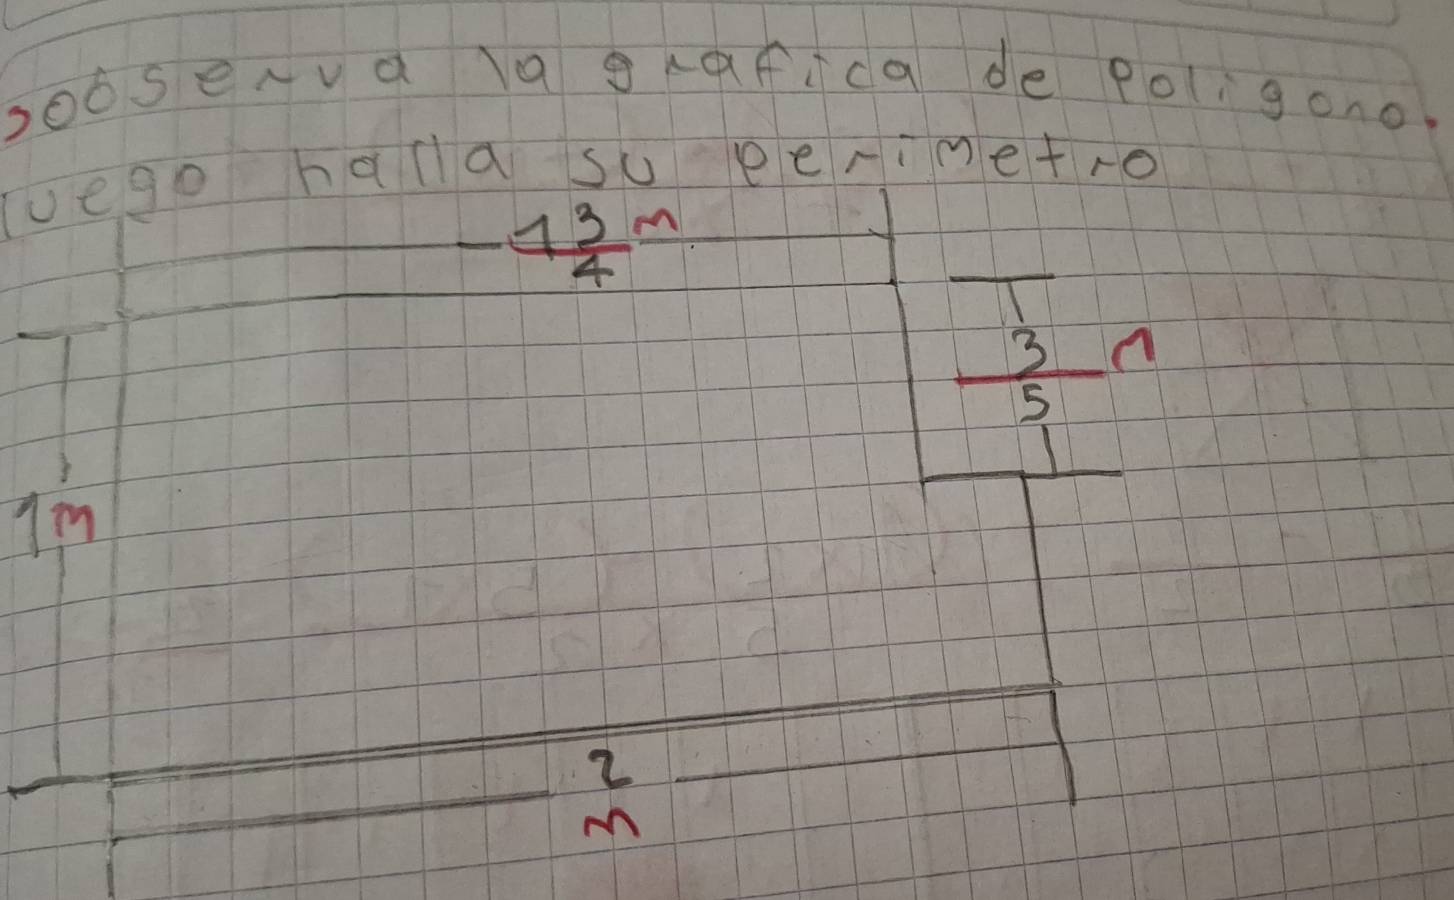 observa la grafica de poligono.
luego halla su perimetro
1 3/4 m
3/5 m
1m
2
m